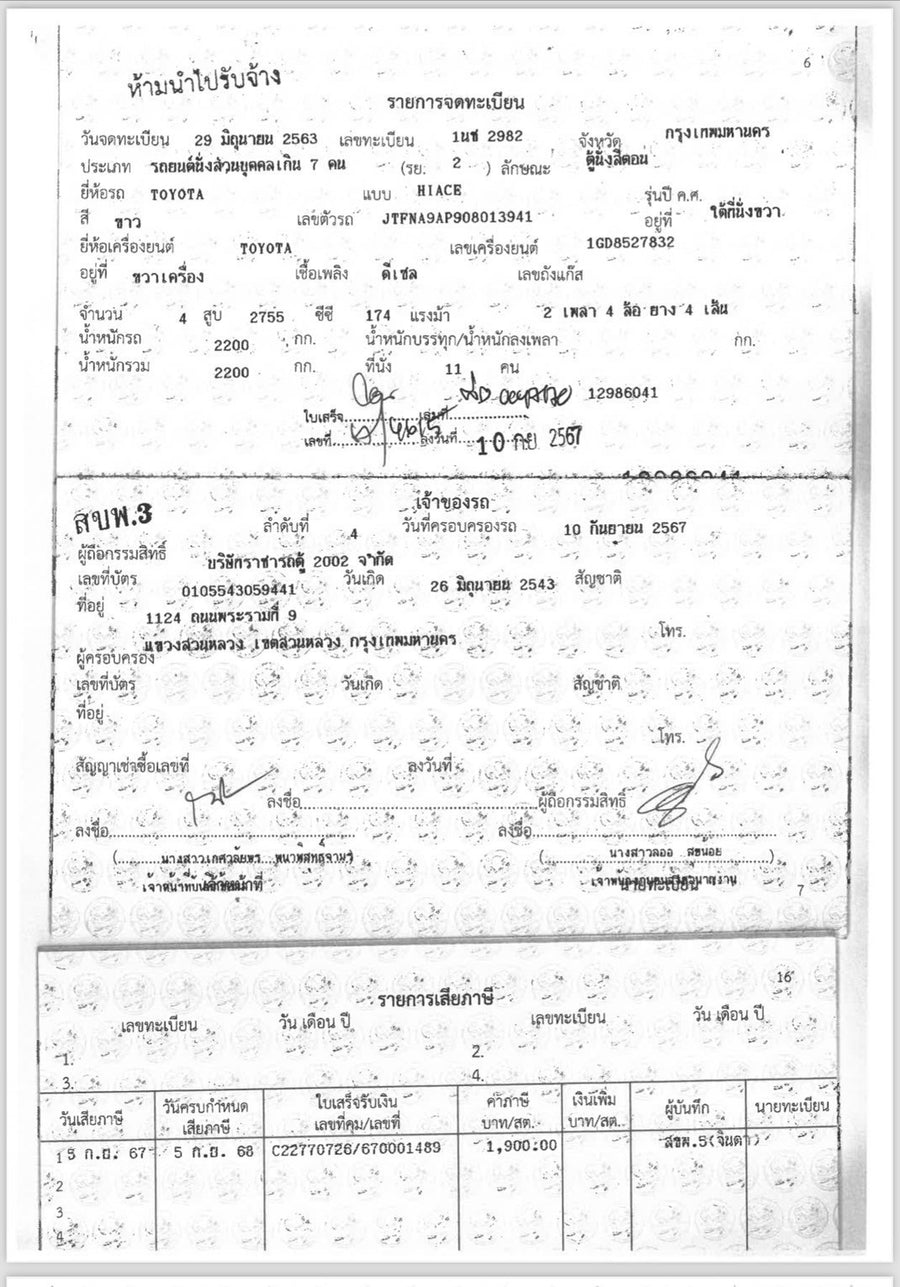 6
ห้ามนำไปรับจ้าง
รายการจดทะเบียน
วันจดทะเบียน 29 มิถุนายน 2563 เลขทะเบียน 1นช 2982 จังหวัด กรุงเทพมหานคร
ประเภท รถยนต์นั่งส่วนบุคคลเกิน 7 คน (รย. 2 ) ลักษณะ ตู้นั่งสี่ตอน
ยี่ห้อรถ TOYOTA แบบ HIACE รุ่นปี ค.ศ.
สี ขาว เลขตัวรถ JTFNA9AP908013941 อยู่ที่ ใต้ที่นั่งขวา
ยี่ห้อเครื่องยนต์ TOYOTA เลขเครื่องยนต์ 1GD8527832
อยู่ที่ ขวาเครื่อง เชื้อเพลิง ดีเซล เลขถังแก๊ส
จำนวน 4 สูบ 2755 ซีซี 174 แรงม้า 2 เพลา 4 ล้อ ยาง 4 เส้น
น้ำหนักรถ 2200 กก. น้ำหนักบรรทุก/น้ำหนักลงเพลา กก.
น้ำหนักรวม 2200 กก. ที่นั่ง 11 คน
12986041
ใบเสร็จ เล่มที่
เลขที่ ลงวันที่ 10 กย 2567
สบพ.3
เจ้าของรถ
ลำดับที่ 4 วันที่ครอบครองรถ 10 กันยายน 2567
ผู้ถือกรรมสิทธิ์ บริษัทราชารถตู้ 2002 จำกัด
เลขที่บัตร 0105543059441 วันเกิด 26 มิถุนายน 2543 สัญชาติ
ที่อยู่ 1124 ถนนพระรามที่ 9
แขวงสวนหลวง เขตสวนหลวง กรุงเทพมหานคร โทร.
ผู้ครอบครอง
เลขที่บัตร วันเกิด สัญชาติ
ที่อยู่
โทร.
สัญญาเช่าซื้อเลขที่ ลงวันที่
ลงชื่อ ผู้ถือกรรมสิทธิ์
ลงชื่อ ลงชื่อ
นางสาวลออ
นายทะเบียน
7
16
รายการเสียภาษี
เลขทะเบียน วัน เดือน ปี เลขทะเบียน วัน เดือน ปี
1. 2.
3. 4.
วันเสียภาษี วันครบกำหนดเสียภาษี ใบเสร็จรับเงิน เลขที่คุม/เลขที่ ค่าภาษี บาท/สต. เงินเพิ่ม บาท/สต. ผู้บันทึก นายทะเบียน
1 5 ก.ย. 67 5 ก.ย. 68 C22770726/670001489 1,900.00 สขพ.5(จินดา)
2
3
4